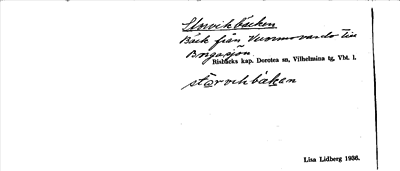 Storvikbäcken
Bäck från Vuornovardo till
Borgasjön.
Risbäcks kap. Dorotea sn, Vilhelmina tg, Vbt. l.
storvikbäken
Lisa Lidberg 1936.